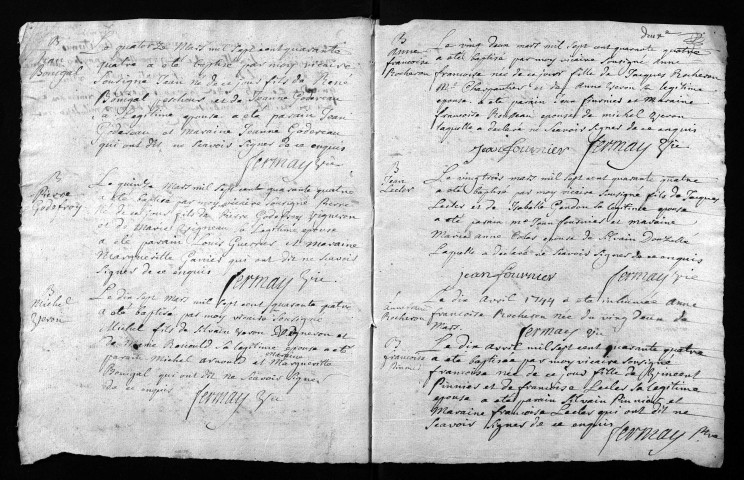 B
Jean
Bourgal
Le quatorze Mars mil sept cent quarante
quatre a eté baptisé par moy vicaire
sousigné Jean né de ce jour fils de René
Bourgal et de Jeanne Godereau
sa legitime epouse a eté parain Jean
Godereau et Maraine Jeanne Godereau
qui ont dit ne scavoir signer de ce enquis
fermay Vic
B
Pierre
Godefroy
Le quinze Mars mil sept cent quarante quatre
a eté baptisé par moy vicaire sousigné Pierre
né de ce jour fils de Pierre Godefroy vigneron
et de Marie sa Legitime epouse
a eté parain Louis et maraine
Marguerithe qui ont dit ne scavoir
signer de ce enquis
fermay Vic
B
Michel
Veron
Le dix sept Mars mil sept cent quarante quatre
a eté baptisé par moy vicaire sousigné
Michel fils de Silvain Veron Vigneron et
de sa legitime epouse a eté
parain Michel et maraine Marguerithe
Bourgal qui ont dit ne scavoir signer
de ce enquis
fermay Vic
deux
B
Anne
francoise
Rocheron
Le vingt deux mars mil sept cent quarante quatre
a eté baptisé par moy vicaire sousigné Anne
francoise née de ce jour fille de Jacques Rocheron
Mtre Charpentier et de Anne Veron sa legitime
epouse a eté parain Jean fournier et Maraine
francoise epouse de Michel Veron
laquelle a declaré ne scavoir signer de ce enquis
jean fournier fermay Vic
B
Jean
Lecler
Le vingt trois mars mil sept cent quarante quatre
a eté baptisé par moy vicaire sousigné fils de Jacques
Lecler et de Isabelle sa legitime epouse
a eté parain Mtre Jean fournier et maraine
Marie anne epouse de Silvain
Laquelle a declaré ne scavoir signer de ce enquis
jean fournier fermay Vic
Anne
Rocheron
Le dix Avril 1744 a eté inhumée Anne
francoise Rocheron née du vingt deux de
Mars fermay Vic
B
francoise
Pinnier
Le dix Avril mil sept cent quarante quatre
a eté baptisée par moy vicaire sousigné
francoise née de ce jour fille de Vincent
Pinnier et de francoise Lecler sa legitime
epouse a eté parain Silvain Pinnier et
Maraine francoise Lecler qui ont dit ne
scavoir signer de ce enquis
fermay